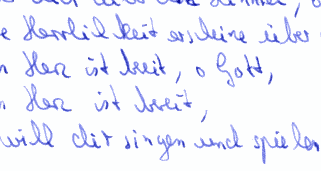 Herrlichkeit erscheine über
Herz ist breit, o Gott,
Herz ist bereit,
will dir singen und spielen